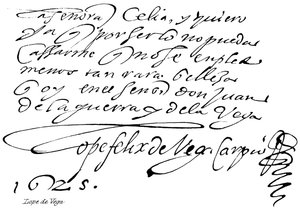 señora Celia, y quiero
no puedas
Cassarme
menos tan rara belleza
Goy en el señor don Juan
de la guerra y de la Vega
Lope felix de Vega Carpio
1625.
Lope de Vega